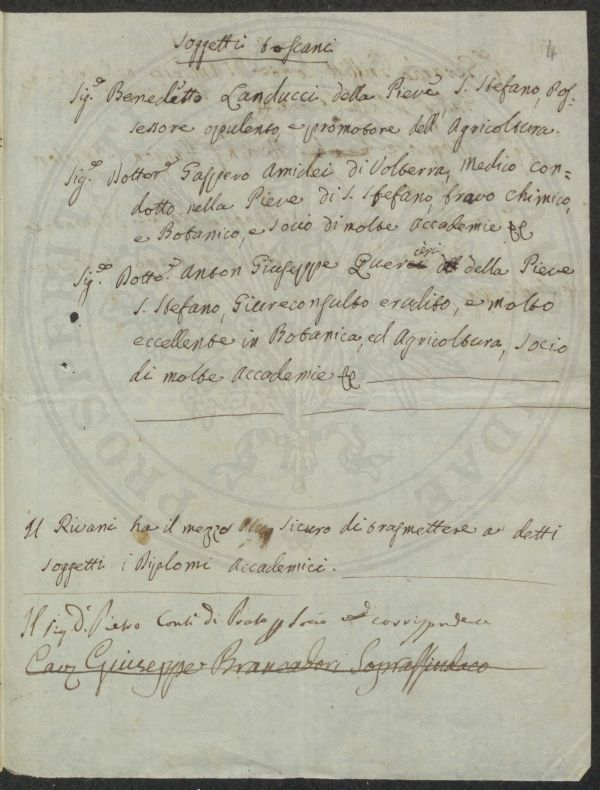 Soggetti toscani
4
Sig.e Benedetto Landucci della Pieve S. Stefano, Pos-
sessore opulento, e promotore dell'Agricoltura.
Sig.e Dottore Gaspero Amidei di Volterra, Medico con-
dotto nella Pieve di S. Stefano, bravo chimico,
e Botanico, e Socio di molte Accademie
Sig.e Dotto.e Anton Giuseppe della Pieve
S. Stefano, Giureconsulto erudito, e molto
eccellente in Botanica, ed Agricoltura, Socio
di molte Accademie
Il Rivani ha il mezzo sicuro di trasmettere a' detti
soggetti i Diplomi Accademici.
Il Sig. D. Pietro Conti di Prato Socio corrispondente
Cav Giuseppe Brancadori Soprassindaco
PROSPERITATI